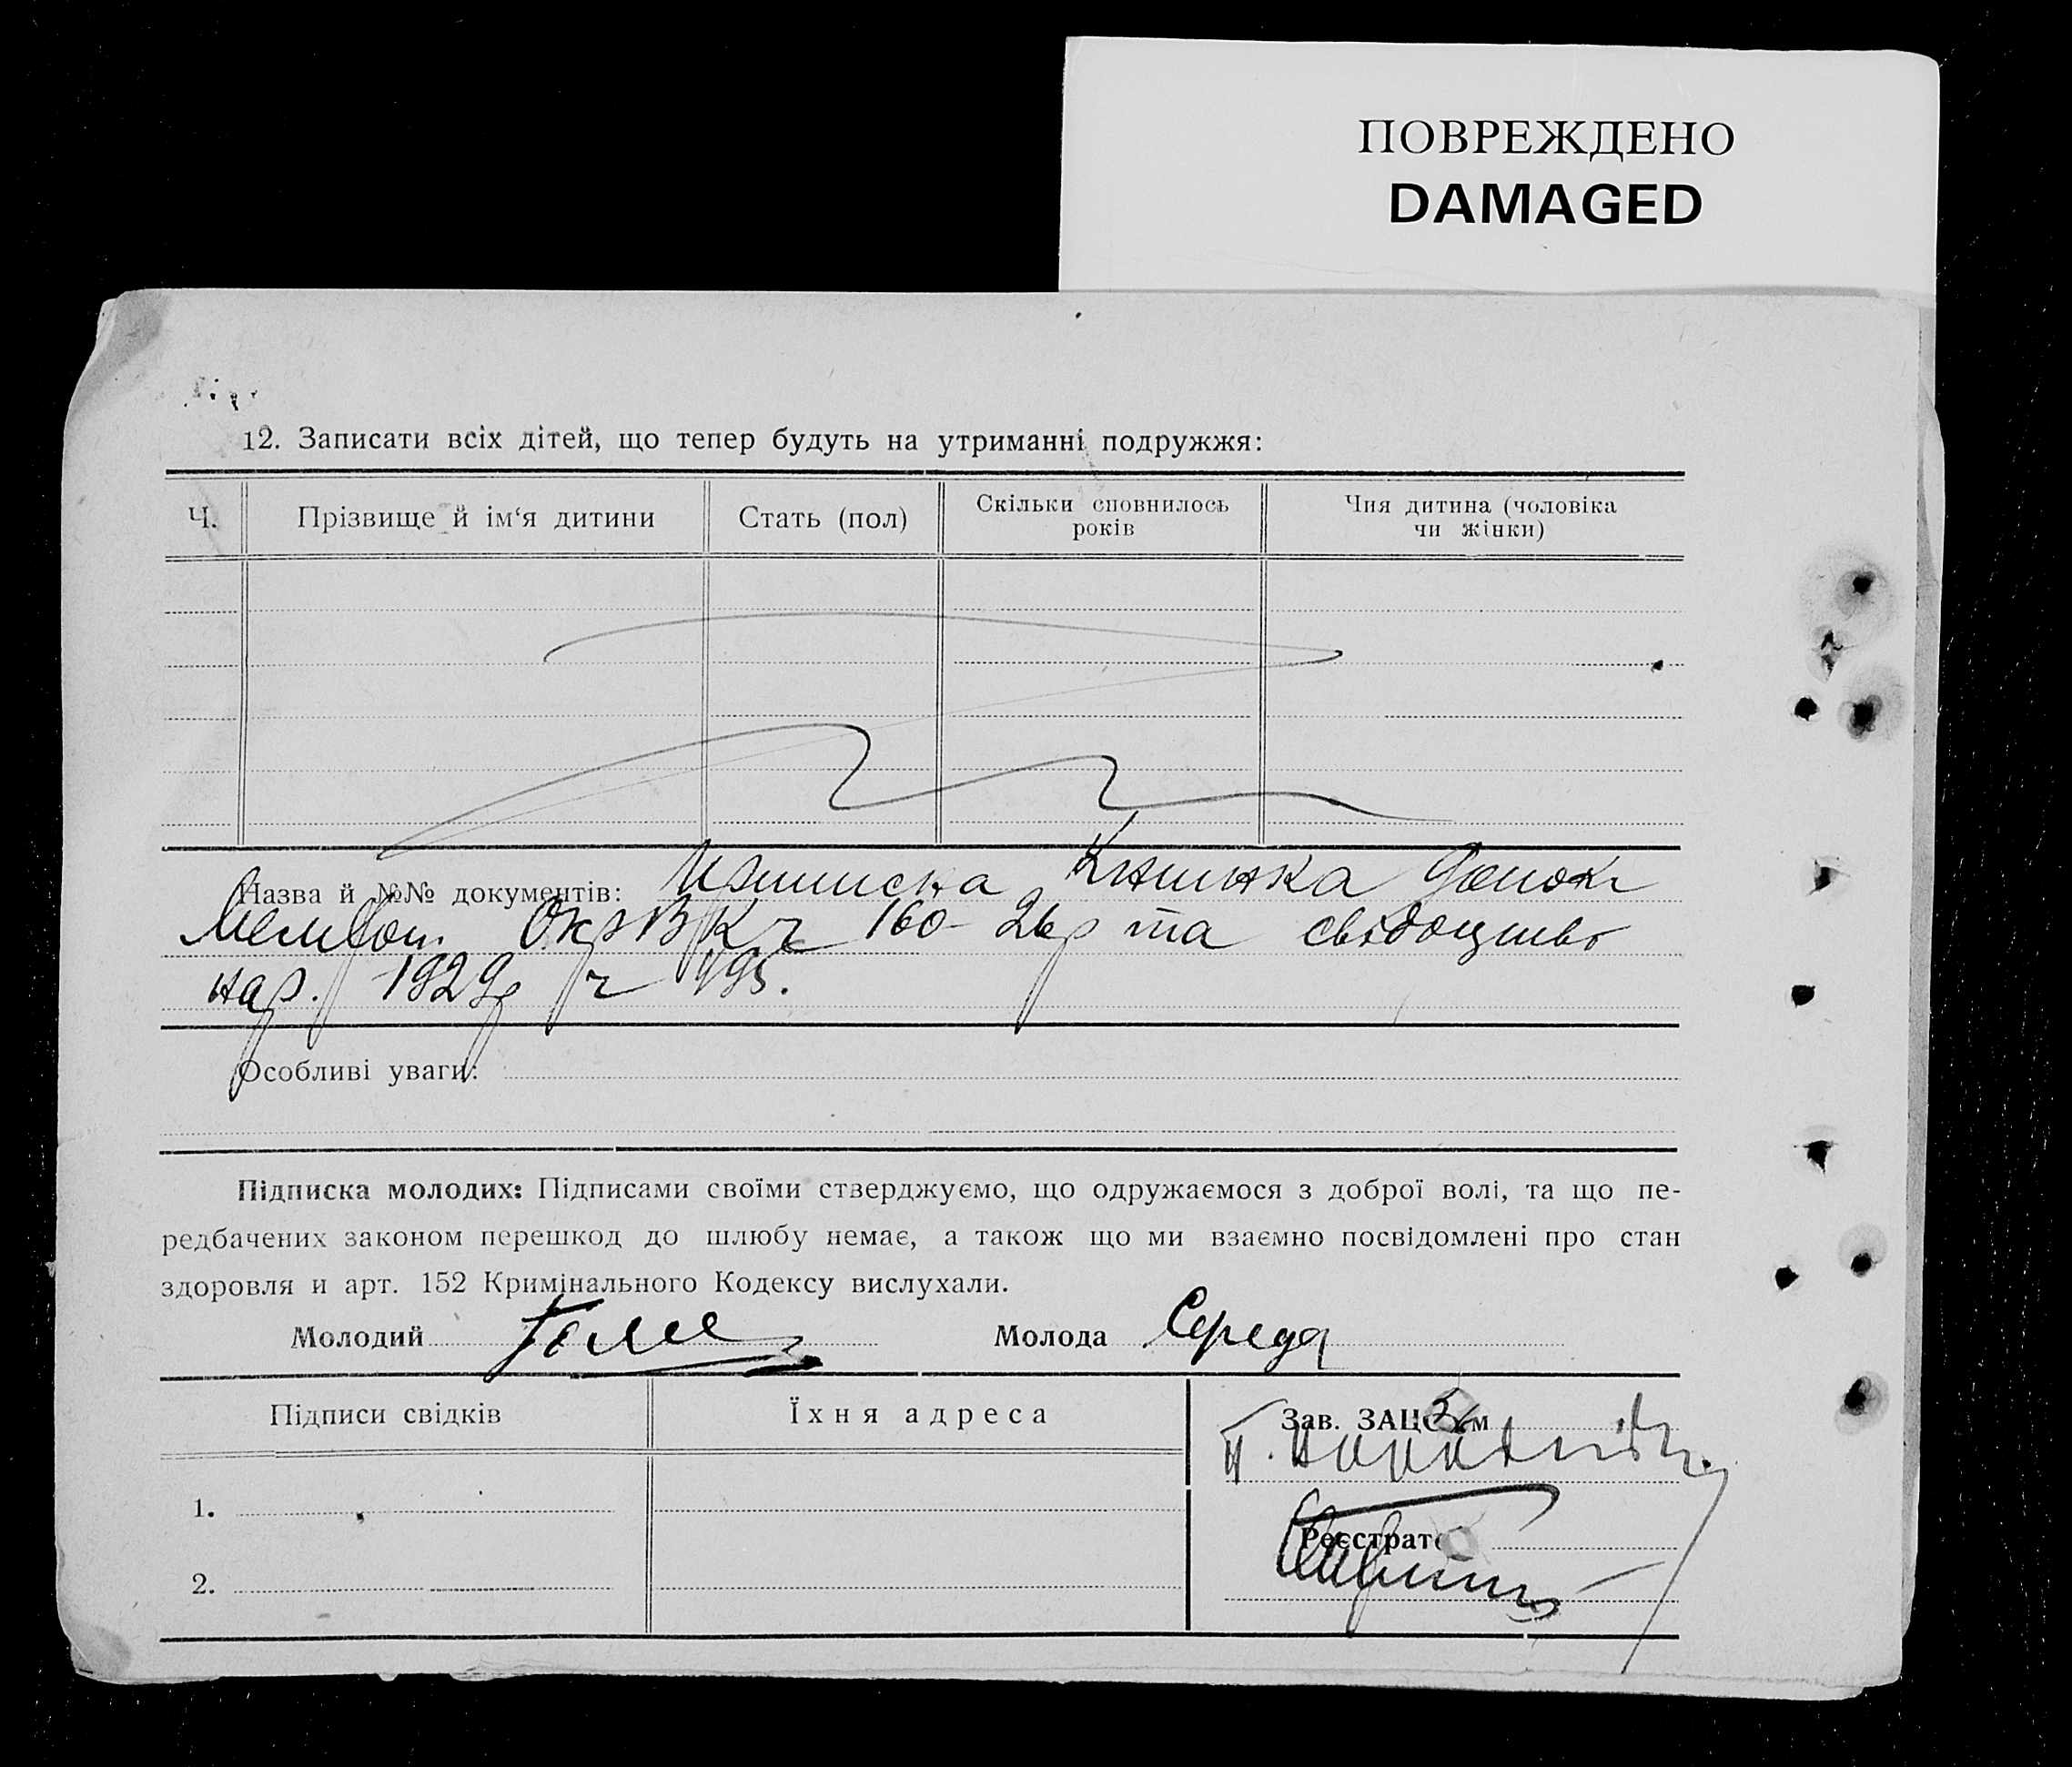 ПОВРЕЖДЕНО
DAMAGED
12. Записати всіх дітей, що тепер будуть на утриманні подружжя:
Ч.
Прізвище й ім‘я дитини
Стать (пол)
Скільки сповнилось
років
Чия дитина (чоловіка
чи жінки)
Назва й №№ документів:
160 та свідоцтво
нар. 1929р ч 495.
Особливі уваги:
Підписка молодих: Підписами своїми стверджуємо, що одружаємося з доброї волі, та що пе-
редбачених законом перешкод до шлюбу немає, а також що ми взаємно посвідомлені про стан
здоровля и арт. 152 Кримінального Кодексу вислухали.
Молодий
Молода Середа
Підписи свідків
Їхня адреса
Зав. ЗАЦС'ом
1.
Реєстрато
2.